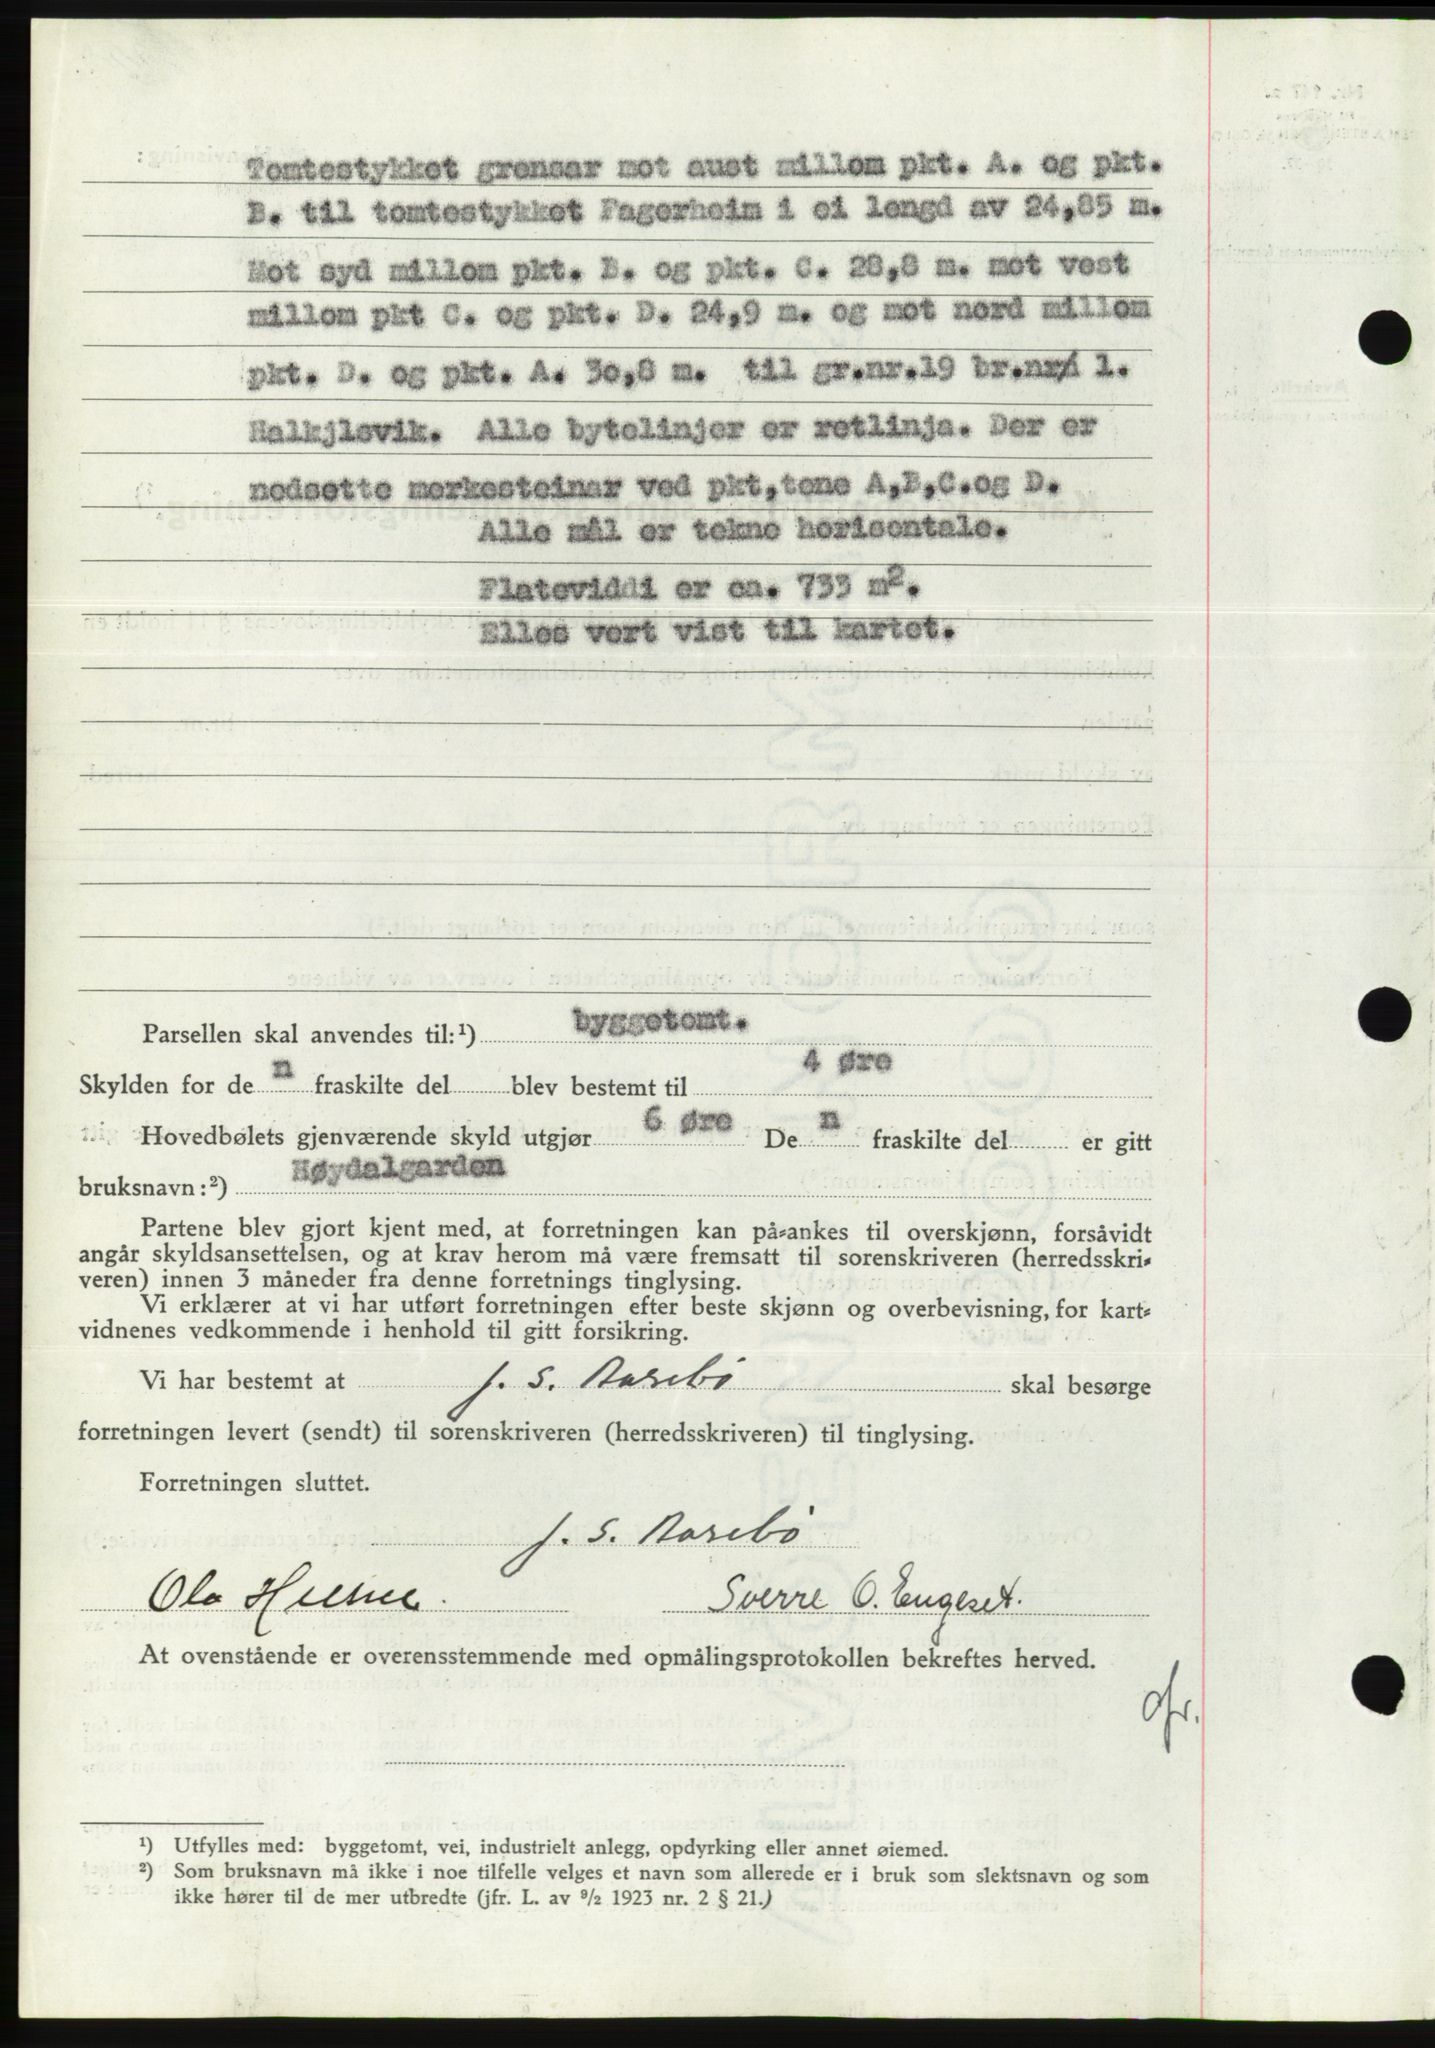 Tomtestykket grensar mot aust millom pkt. A. og pkt.
B. til tomtestykket Fagerheim i ei lengd av 24,85 m.
Mot syd millom pkt. B. og pkt. C. 28,8 m. mot vest
millom pkt C. og pkt. D. 24,9 m. og mot nord millom
pkt. D. og pkt. A. 30,8 m. til gr.nr.19 br.nr/i 1.
Halkjlsvik. Alle bytelinjer er retlinja. Der er
nedsette merkesteinar ved pkt,tene A,B,C.og D.
Alle mål er tekne horisontale.
Flateviddi er ca. 733 m².
Elles vert vist til kartet.
Parsellen skal anvendes til:¹) byggetomt.
Skylden for de n fraskilte del blev bestemt til 4 øre
Hovedbølets gjenværende skyld utgjør 6 øre De n fraskilte del er gitt
bruksnavn:²) Høydalgarden
Partene blev gjort kjent med, at forretningen kan på-ankes til overskjønn, forsåvidt
angår skyldsansettelsen, og at krav herom må være fremsatt til sorenskriveren (herredsskri-
veren) innen 3 måneder fra denne forretnings tinglysing.
Vi erklærer at vi har utført forretningen efter beste skjønn og overbevisning, for kart-
vidnenes vedkommende i henhold til gitt forsikring.
Vi har bestemt at J. S. Aasebø skal besørge
forretningen levert (sendt) til sorenskriveren (herredsskriveren) til tinglysing.
Forretningen sluttet.
J. S. Aasebø
Ola Sverre O. Engeset.
At ovenstående er overensstemmende med opmålingsprotokollen bekreftes herved.
¹) Utfylles med: byggetomt, vei, industrielt anlegg, opdyrking eller annet øiemed.
²) Som bruksnavn må ikke i noe tilfelle velges et navn som allerede er i bruk som slektsnavn og som
ikke hører til de mer utbredte (jfr. L. av ⁹/₂ 1923 nr. 2 § 21.)